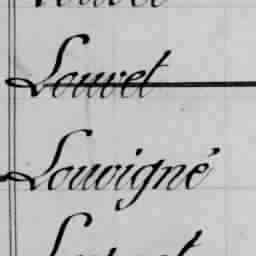 Louvet
Louvigné